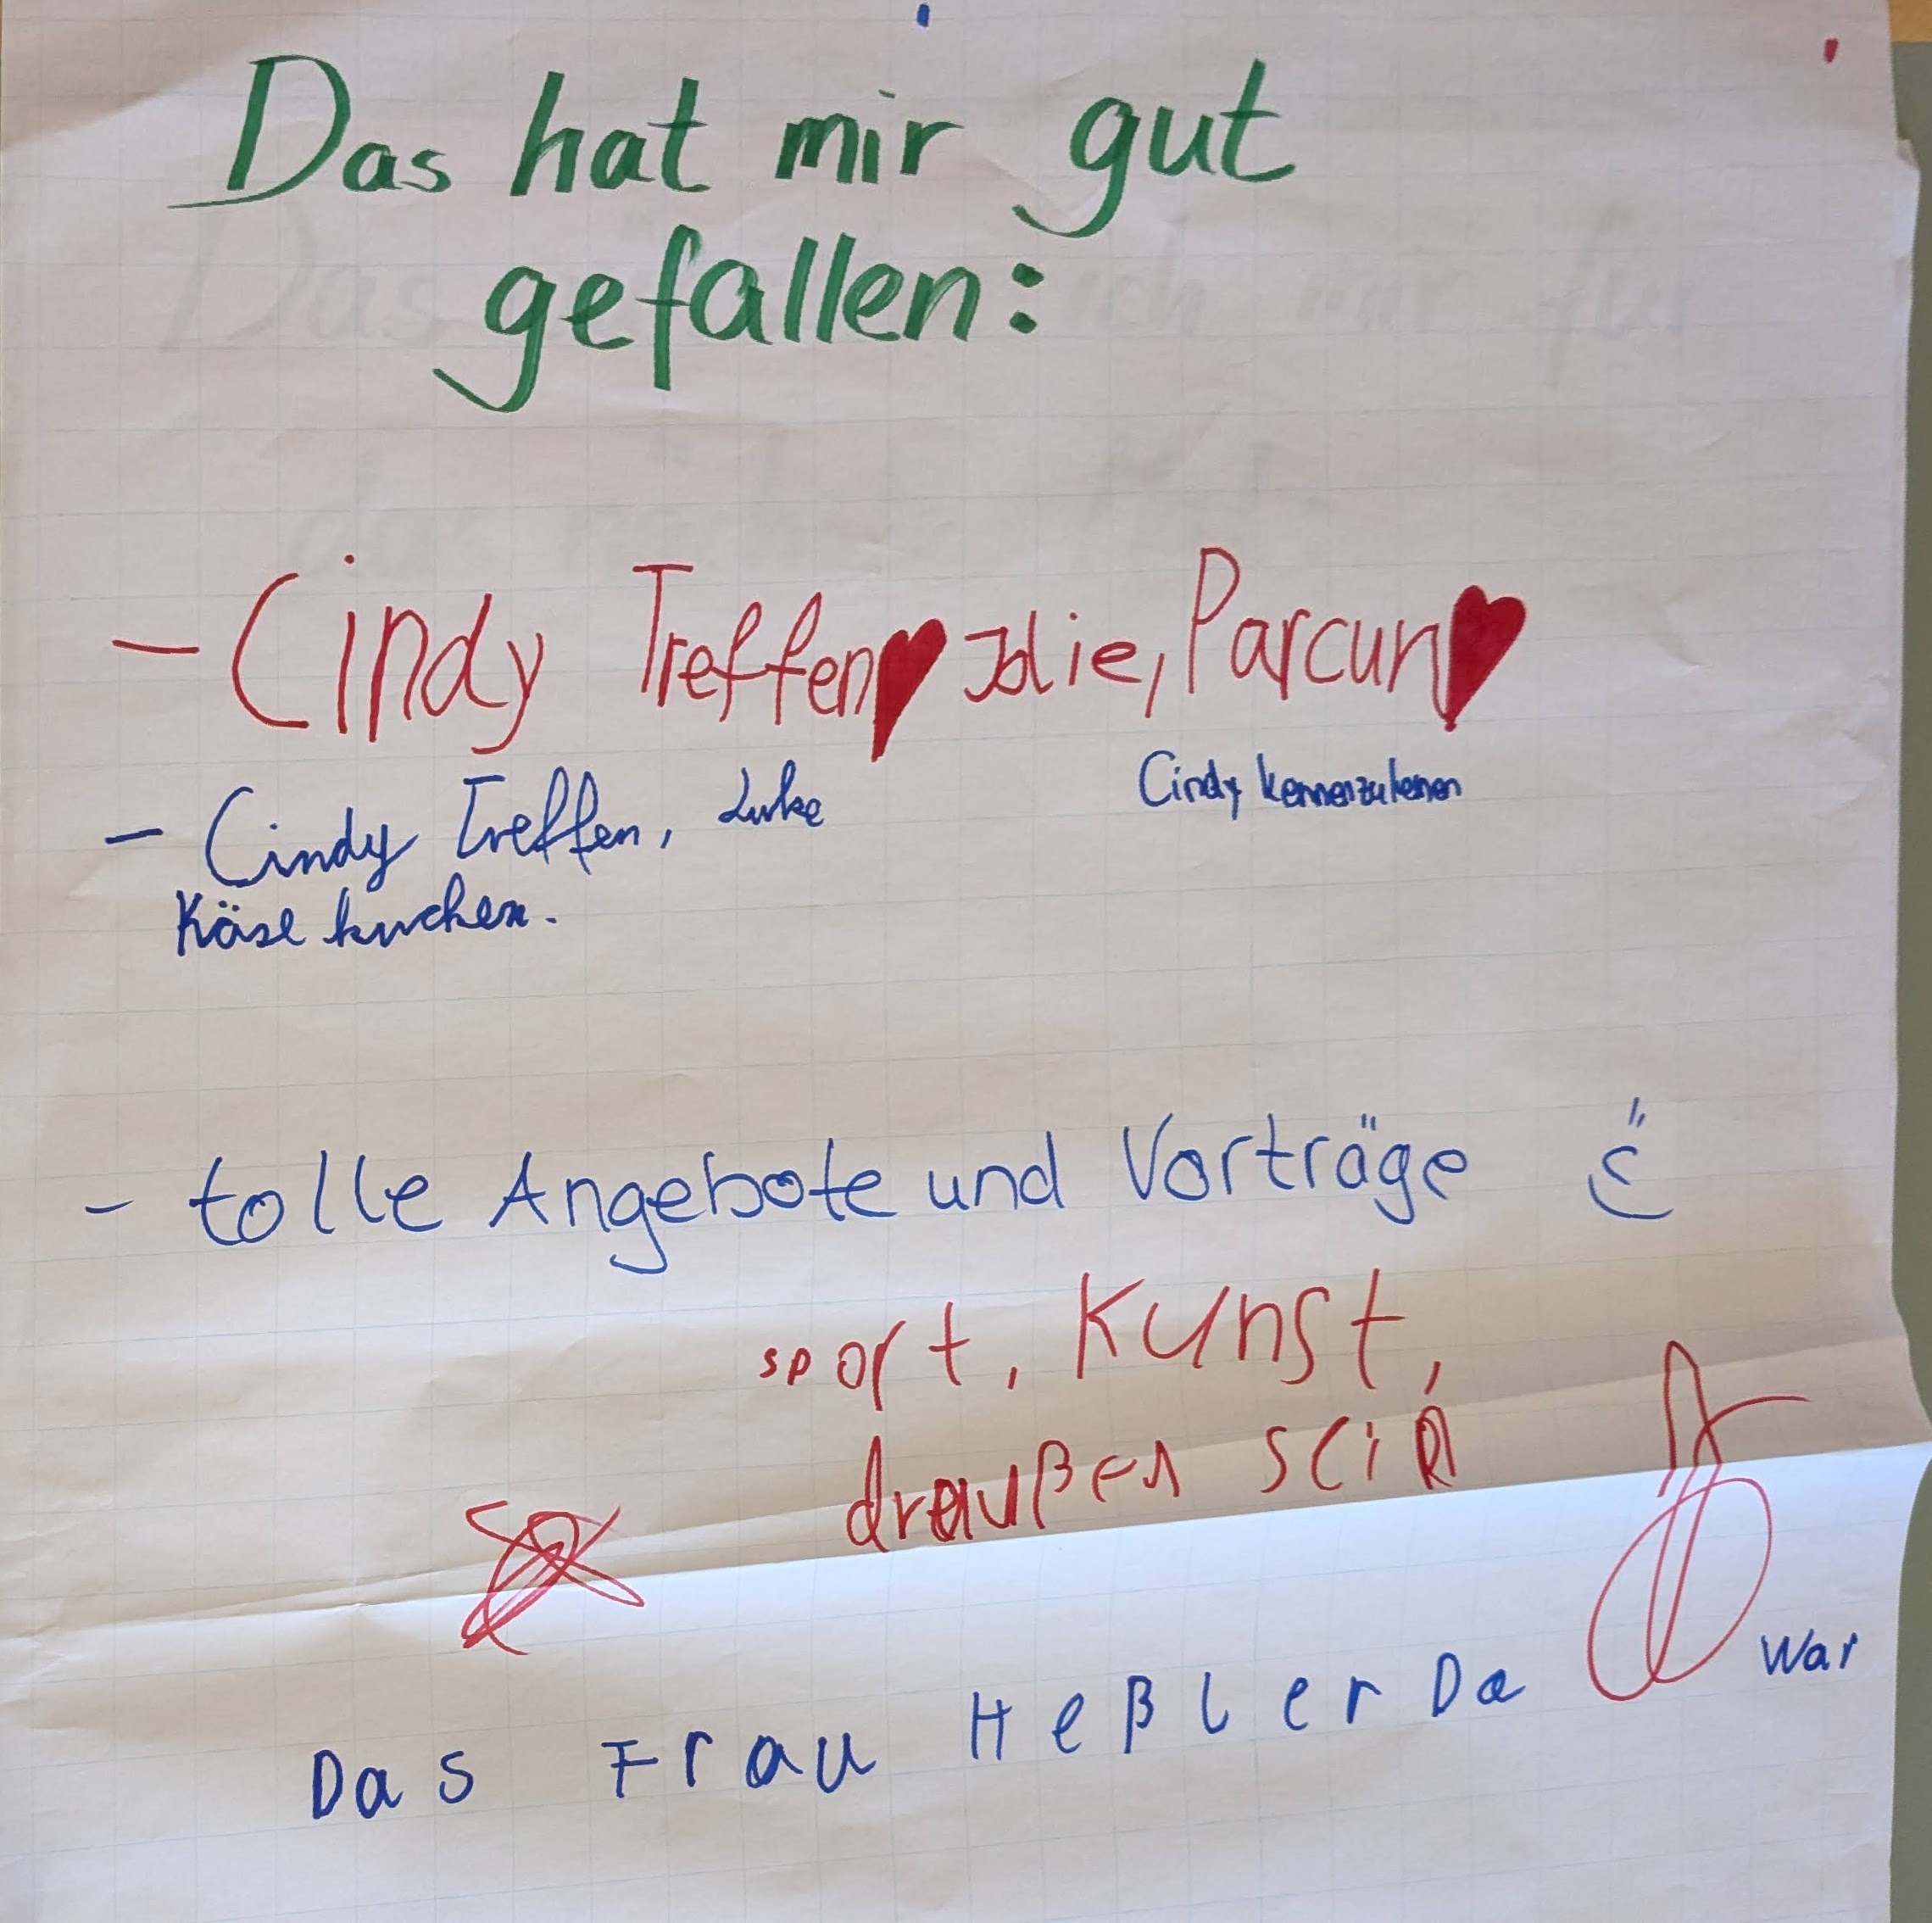 Das hat mir gut
gefallen:
- Cindy Treffen♥ Jolie, Parcun♥
- Cindy Treffen, Luke
Käse kuchen.
Cindy kennenzulernen
- tolle Angebote und Vorträge
sport, Kunst,
draußen sein
Das Frau Heßler Da war